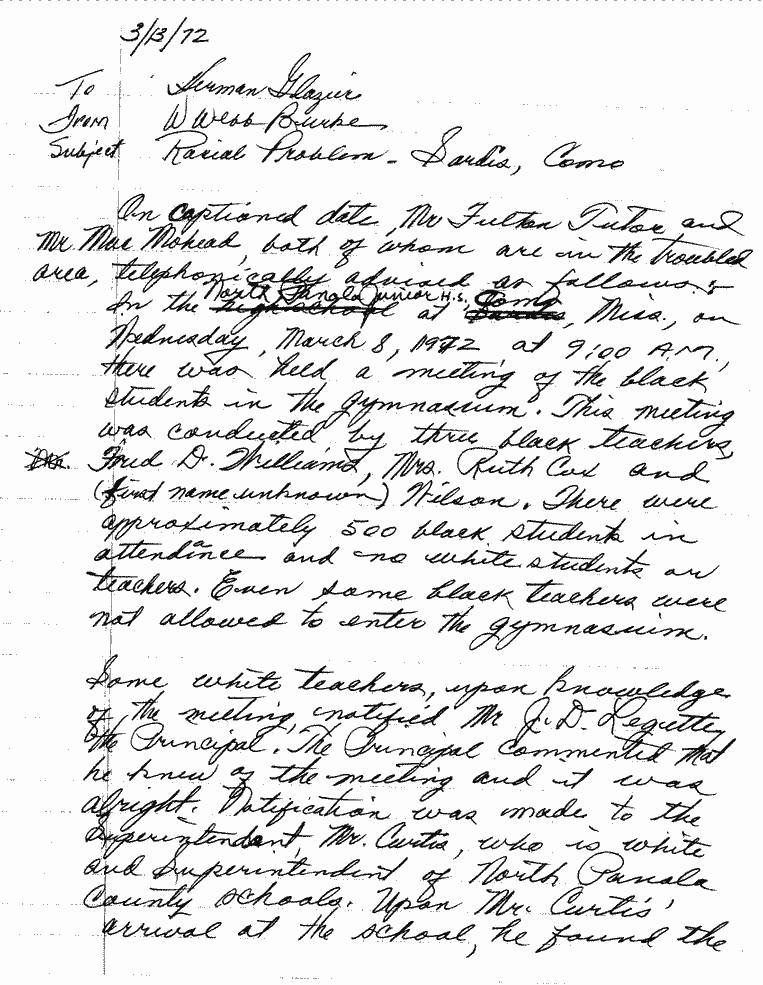 3/13/72
To Herman Glazier
From W Webb Burke
Subject Racial Problem - Sardis, Como
On captioned date, Mr Fulton Tutor and
Mr Mac Mohead, both of whom are in the troubled
area, telephonically advised as follows:-
North Panola Junior H.S. Como
In the high school at Sardis, Miss., on
Wednesday, March 8, 1972 at 9:00 A.M.,
there was held a meeting of the black
students in the gymnasium. This meeting
was conducted by three black teachers,
Fred D. Williams, Mrs. Ruth Cox and
(first name unknown) Wilson. There were
approximately 500 black students in
attendance and no white students or
teachers. Even some black teachers were
not allowed to enter the gymnasium.
Some white teachers, upon knowledge
of the meeting, notified Mr J. D. Legutte,
the Principal. The Principal commented that
he knew of the meeting and it was
alright. Notification was made to the
Superintendant, Mr. Curtis, who is white
and Superintendent of North Panola
County schools. Upon Mr. Curtis'
arrival at the school, he found the